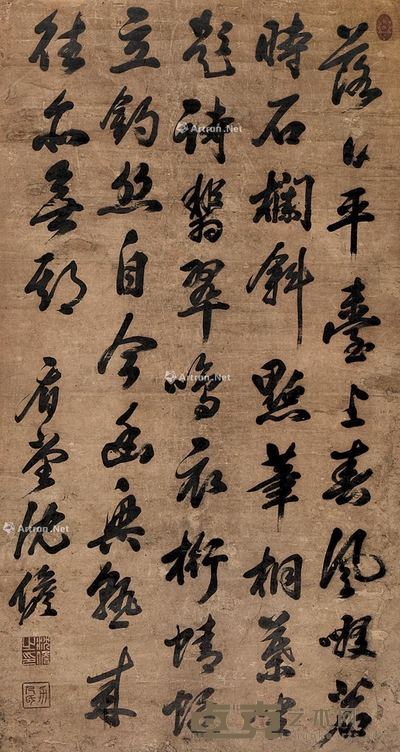 落日平臺上春風啜茗
時石欄斜點筆桐葉坐
題詩翡翠鳴衣桁蜻蜓
立釣絲自今幽興熟來
往亦無期 堂沈
Artron.Net
Artron.Net
Artron.Net
艺术网